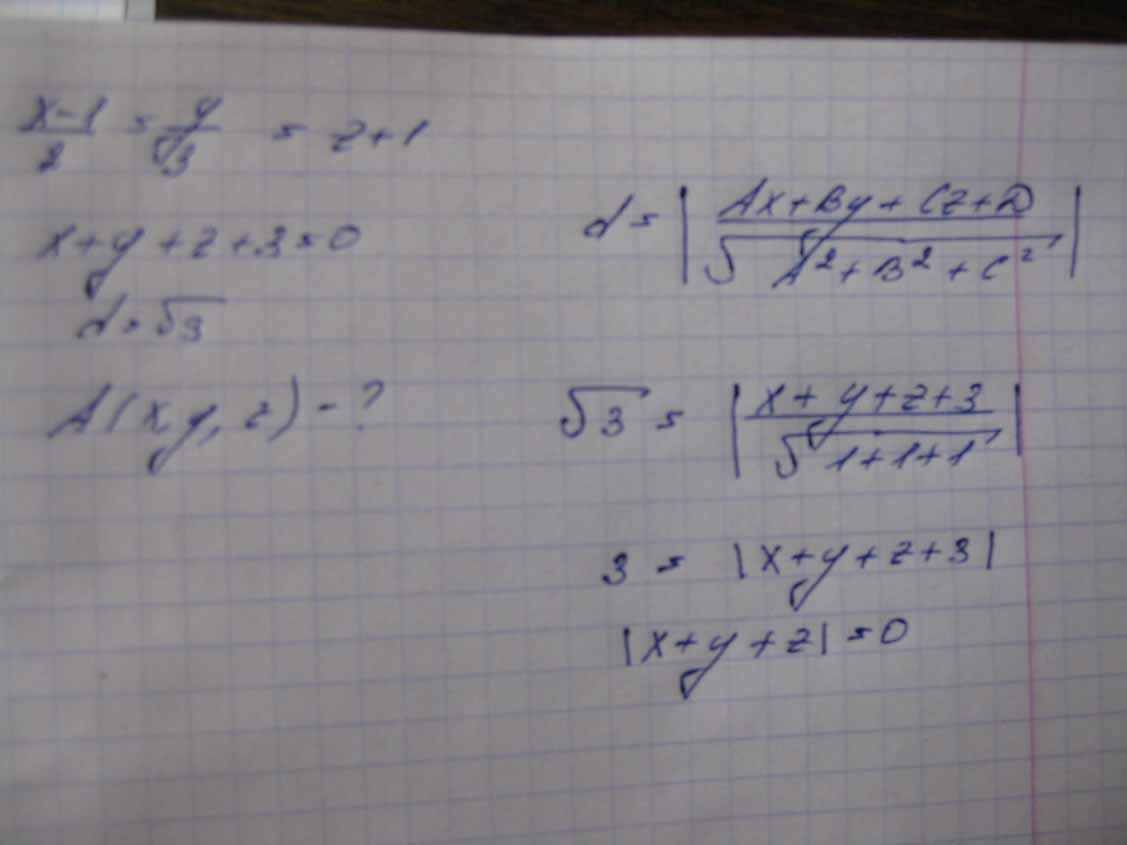 (x-1)/2 = y/3 = z+1
x+y+z+3=0
d=√3
A(x,y,z)-?
d= |(Ax+By+Cz+D)/√(A²+B²+C²)|
√3 = |(x+y+z+3)/√(1+1+1)|
3 = |x+y+z+3|
|x+y+z|=0